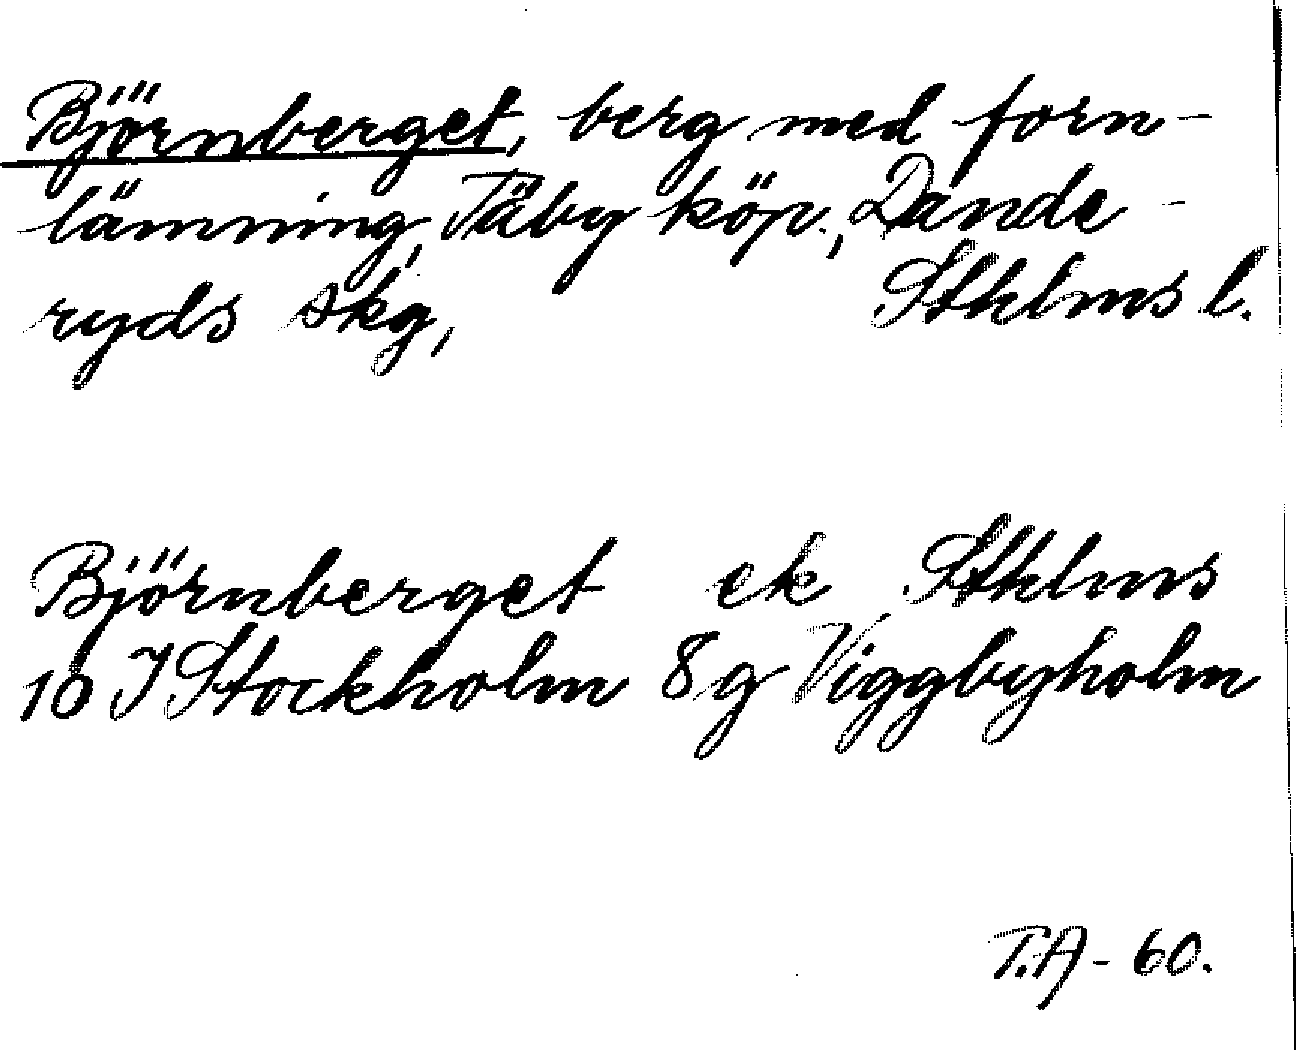 Björnberget, berg med forn-
lämning, Täby köp., Dande-
ryds skg, Sthlms l.
Björnberget ek Sthlms
10 I Stockholm 8g Viggbyholm
T.A-60.